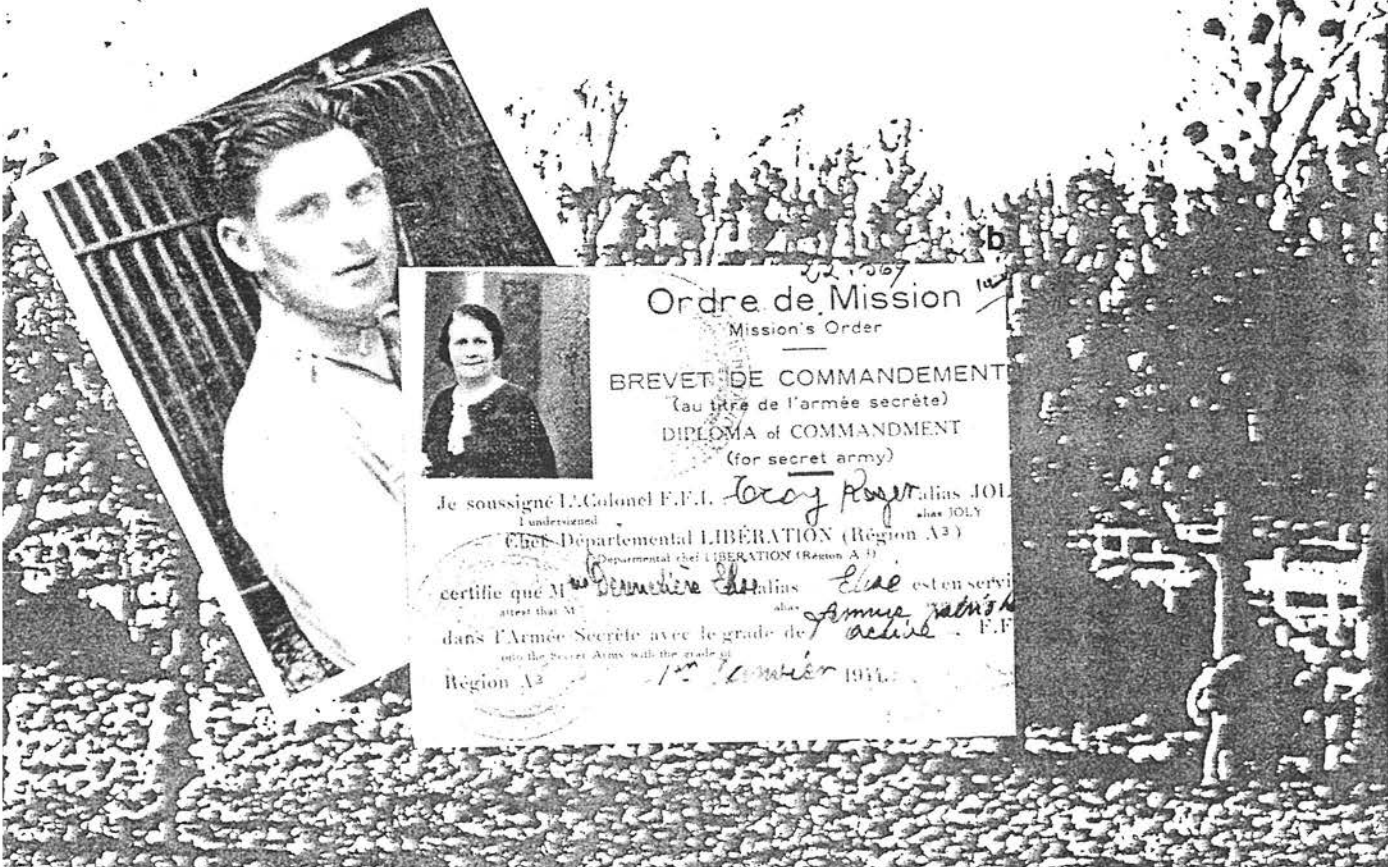 b
Ordre de Mission
Mission's Order
BREVET DE COMMANDEMENT
(au titre de l'armée secrète)
DIPLOMA of COMMANDMENT
(for secret army)
Je soussigné Lt. Colonel F.F.I. Roger alias JOL
I undersigned alias JOLY
Chef Départemental LIBÉRATION (Région A3)
Departmental chef LIBERATION (Région A 3)
certifie que Mme alias Elisé est en servi
attest that M alias
dans l'Armée Secrète avec le grade de active F.F
onto the Secret Army with the grade of
Région A3 1er Janvier 1944.